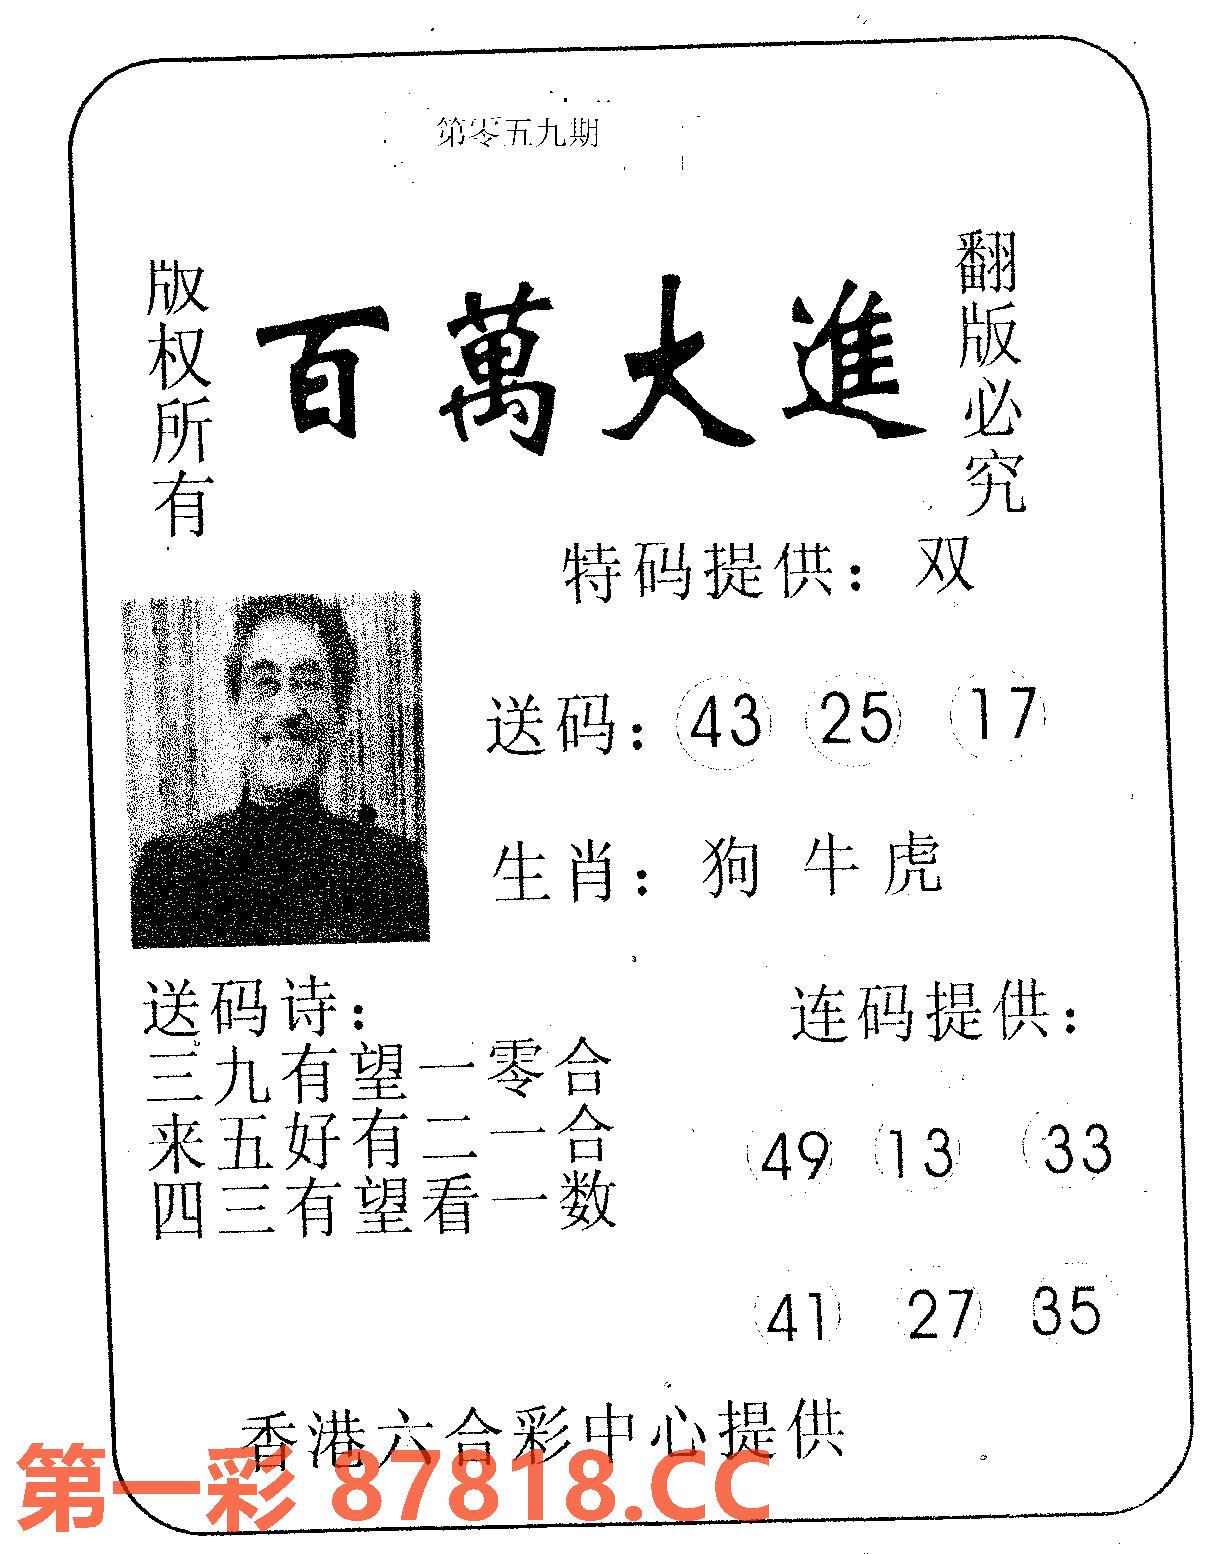 第零五九期
版权所有
百萬大進
翻版必究
特码提供：双
送码：43 25 17
生肖：狗 牛 虎
送码诗：
三九有望一零合
来五好有二一合
四三有望看一数
连码提供：
49 13 33
41 27 35
香港六合彩中心提供
第一彩 87818.CC